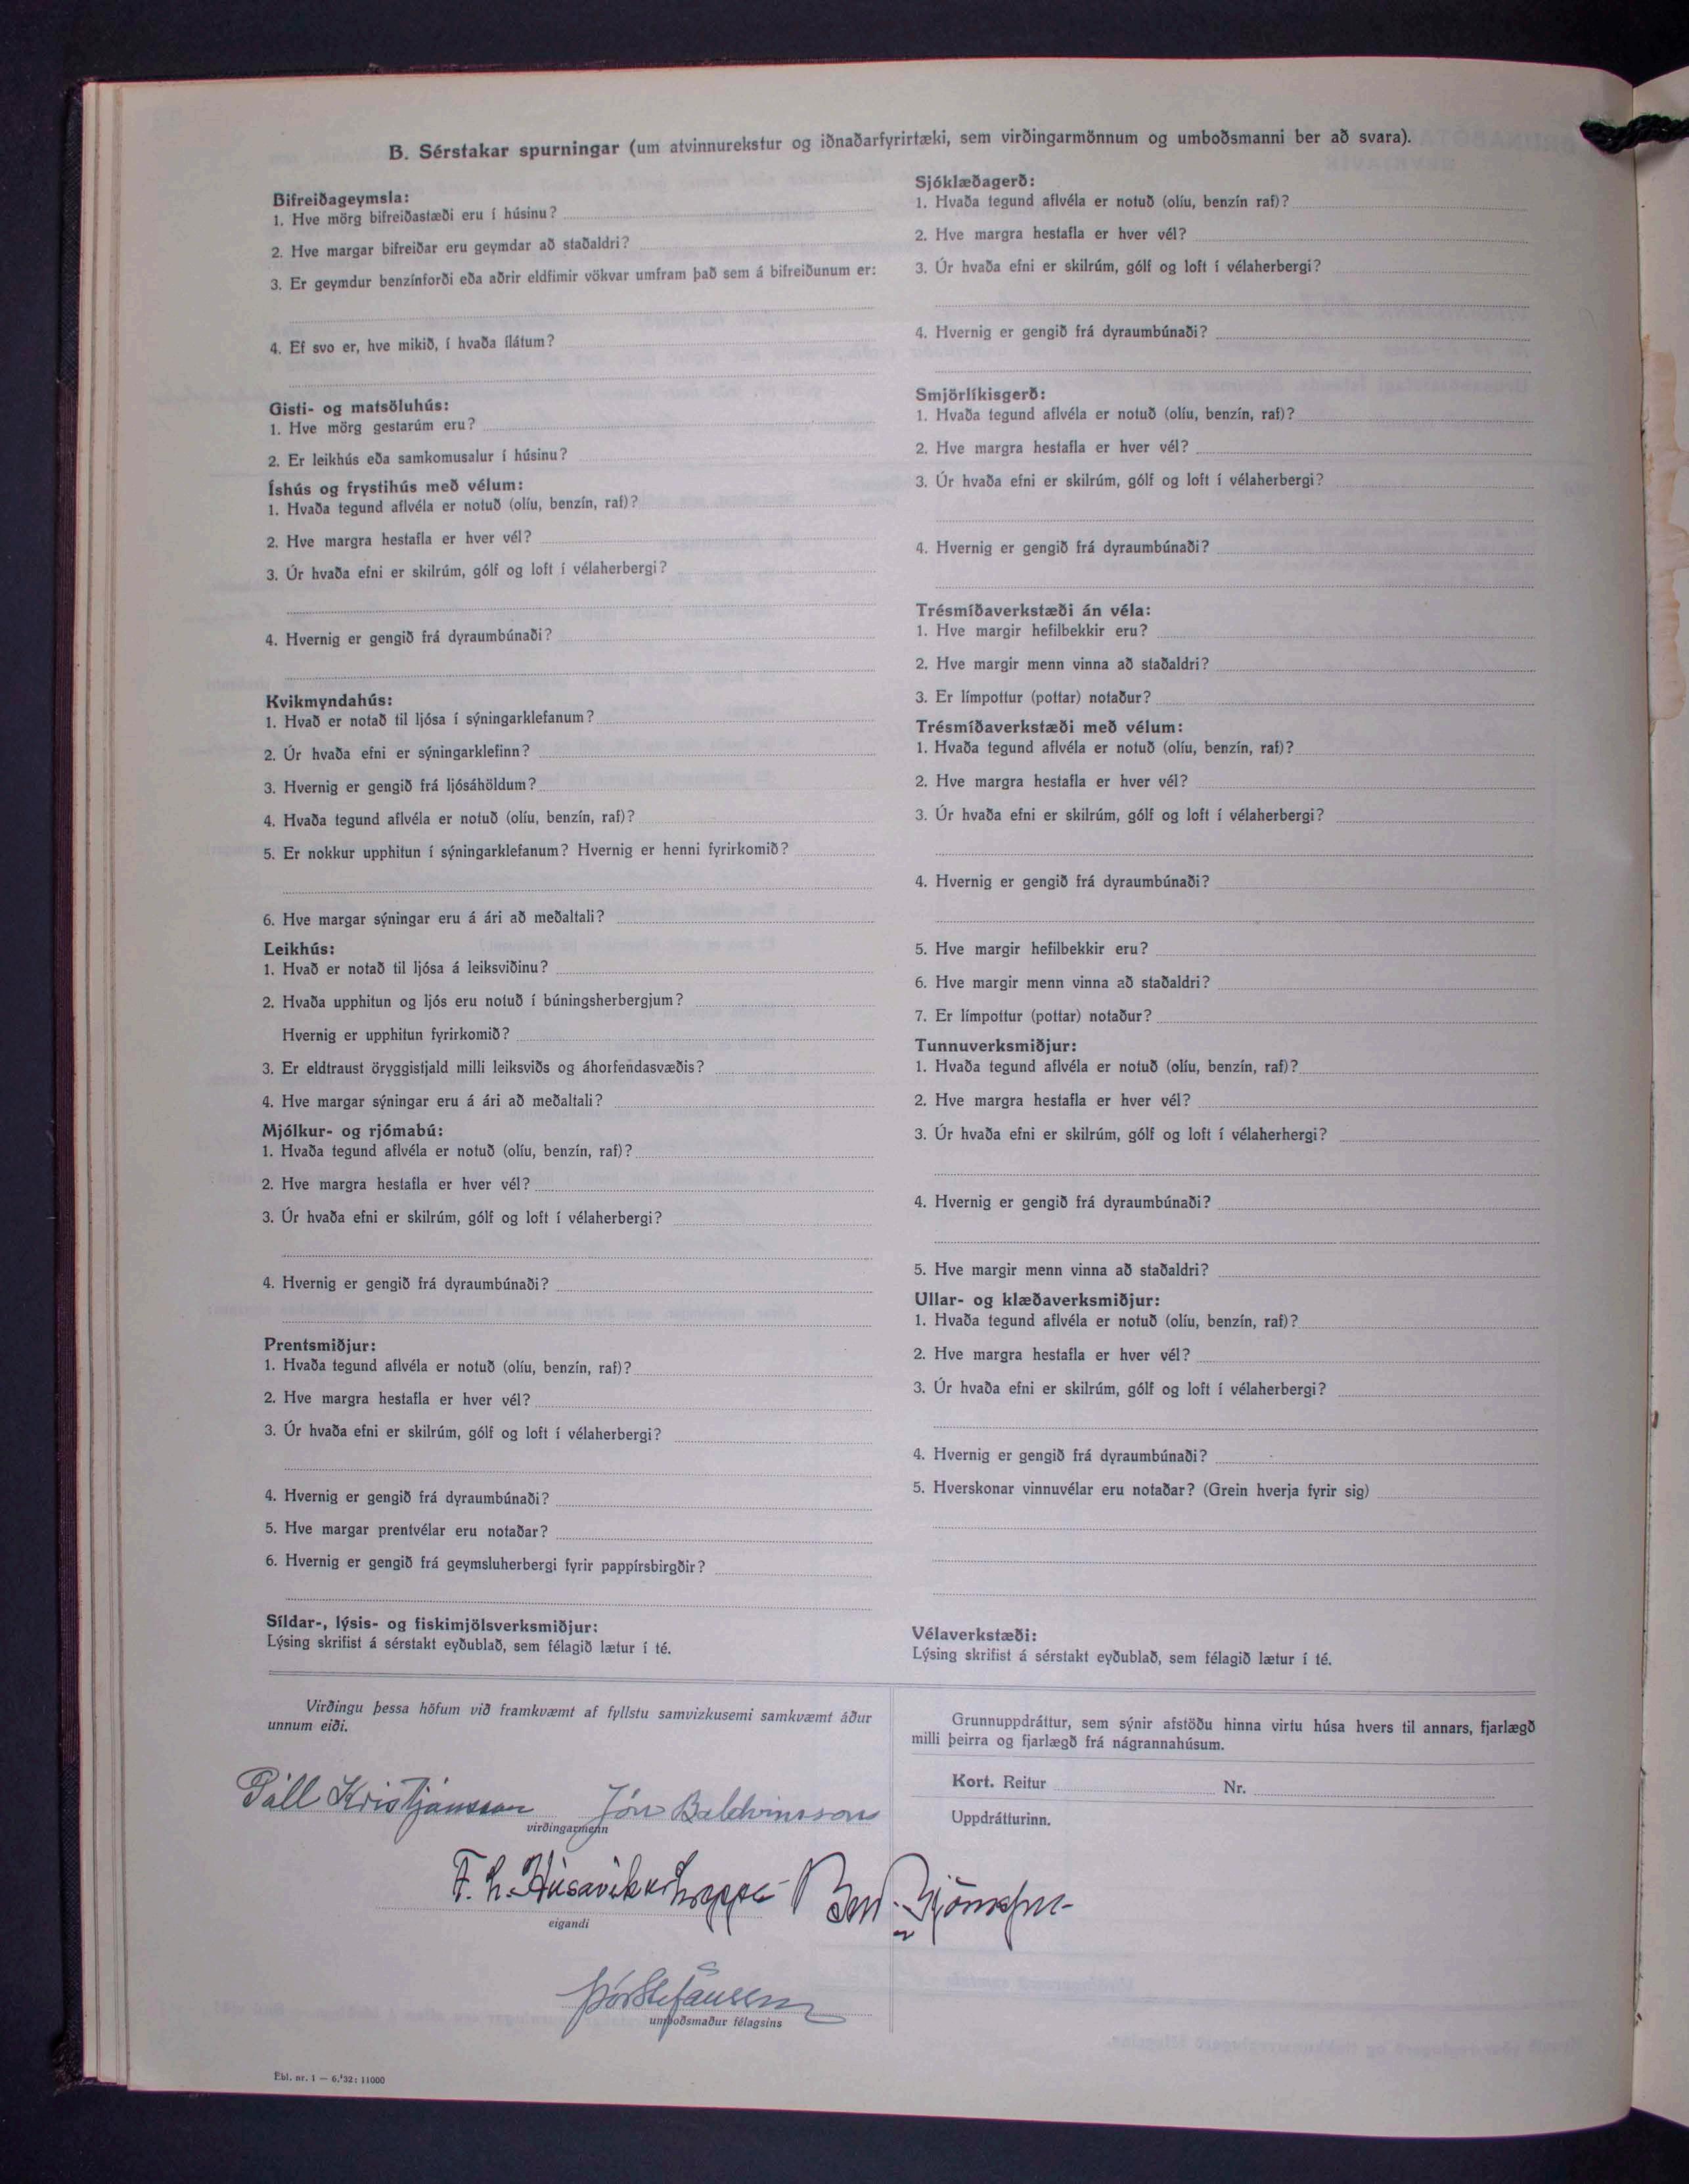 B. Sérstakar spurningar (um atvinnurekstur og iðnaðarfyrirtæki, sem virðingarmönnum og umboðsmanni ber að svara).
Bifreiðageymsla:
1. Hve mörg bifreiðastæði eru í húsinu?
2. Hve margar bifreiðar eru geymdar að staðaldri?
3. Er geymdur benzínforði eða aðrir eldfimir vökvar umfram það sem á bifreiðunum er:
4. Ef svo er, hve mikið, í hvaða ílátum?
Gisti- og matsöluhús:
1. Hve mörg gestarúm eru?
2. Er leikhús eða samkomusalur í húsinu?
Íshús og frystihús með vélum:
1. Hvaða tegund aflvéla er notuð (olíu, benzín, raf)?
2. Hve margra hestafla er hver vél?
3. Úr hvaða efni er skilrúm, gólf og loft í vélaherbergi?
4. Hvernig er gengið frá dyraumbúnaði?
Kvikmyndahús:
1. Hvað er notað til ljósa í sýningarklefanum?
2. Úr hvaða efni er sýningarklefinn?
3. Hvernig er gengið frá ljósáhöldum?
4. Hvaða tegund aflvéla er notuð (olíu, benzín, raf)?
5. Er nokkur upphitun í sýningarklefanum? Hvernig er henni fyrirkomið?
6. Hve margar sýningar eru á ári að meðaltali?
Leikhús:
1. Hvað er notað til ljósa á leiksviðinu?
2. Hvaða upphitun og ljós eru notuð í búningsherbergjum?
Hvernig er upphitun fyrirkomið?
3. Er eldtraust öryggistjald milli leiksviðs og áhorfendasvæðis?
4. Hve margar sýningar eru á ári að meðaltali?
Mjólkur- og rjómabú:
1. Hvaða tegund aflvéla er notuð (olíu, benzín, raf)?
2. Hve margra hestafla er hver vél?
3. Úr hvaða efni er skilrúm, gólf og loft í vélaherbergi?
4. Hvernig er gengið frá dyraumbúnaði?
Prentsmiðjur:
1. Hvaða tegund aflvéla er notuð (olíu, benzín, raf)?
2. Hve margra hestafla er hver vél?
3. Úr hvaða efni er skilrúm, gólf og loft í vélaherbergi?
4. Hvernig er gengið frá dyraumbúnaði?
5. Hve margar prentvélar eru notaðar?
6. Hvernig er gengið frá geymsluherbergi fyrir pappírsbirgðir?
Síldar-, lýsis- og fiskimjölsverksmiðjur:
Lýsing skrifist á sérstakt eyðublað, sem félagið lætur í té.
Sjóklæðagerð:
1. Hvaða tegund aflvéla er notuð (olíu, benzín raf)?
2. Hve margra hestafla er hver vél?
3. Úr hvaða efni er skilrúm, gólf og loft í vélaherbergi?
4. Hvernig er gengið frá dyraumbúnaði?
Smjörlíkisgerð:
1. Hvaða tegund aflvéla er notuð (olíu, benzín, raf)?
2. Hve margra hestafla er hver vél?
3. Úr hvaða efni er skilrúm, gólf og loft í vélaherbergi?
4. Hvernig er gengið frá dyraumbúnaði?
Trésmíðaverkstæði án véla:
1. Hve margir hefilbekkir eru?
2. Hve margir menn vinna að staðaldri?
3. Er límpottur (pottar) notaður?
Trésmíðaverkstæði með vélum:
1. Hvaða tegund aflvéla er notuð (olíu, benzín, raf)?
2. Hve margra hestafla er hver vél?
3. Úr hvaða efni er skilrúm, gólf og loft í vélaherbergi?
4. Hvernig er gengið frá dyraumbúnaði?
5. Hve margir hefilbekkir eru?
6. Hve margir menn vinna að staðaldri?
7. Er límpottur (pottar) notaður?
Tunnuverksmiðjur:
1. Hvaða tegund aflvéla er notuð (olíu, benzín, raf)?
2. Hve margra hestafla er hver vél?
3. Úr hvaða efni er skilrúm, gólf og loft í vélaherhergi?
4. Hvernig er gengið frá dyraumbúnaði?
5. Hve margir menn vinna að staðaldri?
Ullar- og klæðaverksmiðjur:
1. Hvaða tegund aflvéla er notuð (olíu, benzín, raf)?
2. Hve margra hestafla er hver vél?
3. Úr hvaða efni er skilrúm, gólf og loft í vélaherbergi?
4. Hvernig er gengið frá dyraumbúnaði?
5. Hverskonar vinnuvélar eru notaðar? (Grein hverja fyrir sig)
Vélaverkstæði:
Lýsing skrifist á sérstakt eyðublað, sem félagið lætur í té.
Virðingu þessa höfum við framkvæmt af fyllstu samvizkusemi samkvæmt áður
unnum eiði.
Páll Kristjánsson Jón Baldvinsson
virðingarmenn
F. h. Húsavíkurhrepps
eigandi
Þór Stefánsson
umboðsmaður félagsins
Grunnuppdráttur, sem sýnir afstöðu hinna virtu húsa hvers til annars, fjarlægð
milli þeirra og fjarlægð frá nágrannahúsum.
Kort. Reitur Nr.
Uppdrátturinn.
Ebl. nr. 1 — 6.'32: 11000